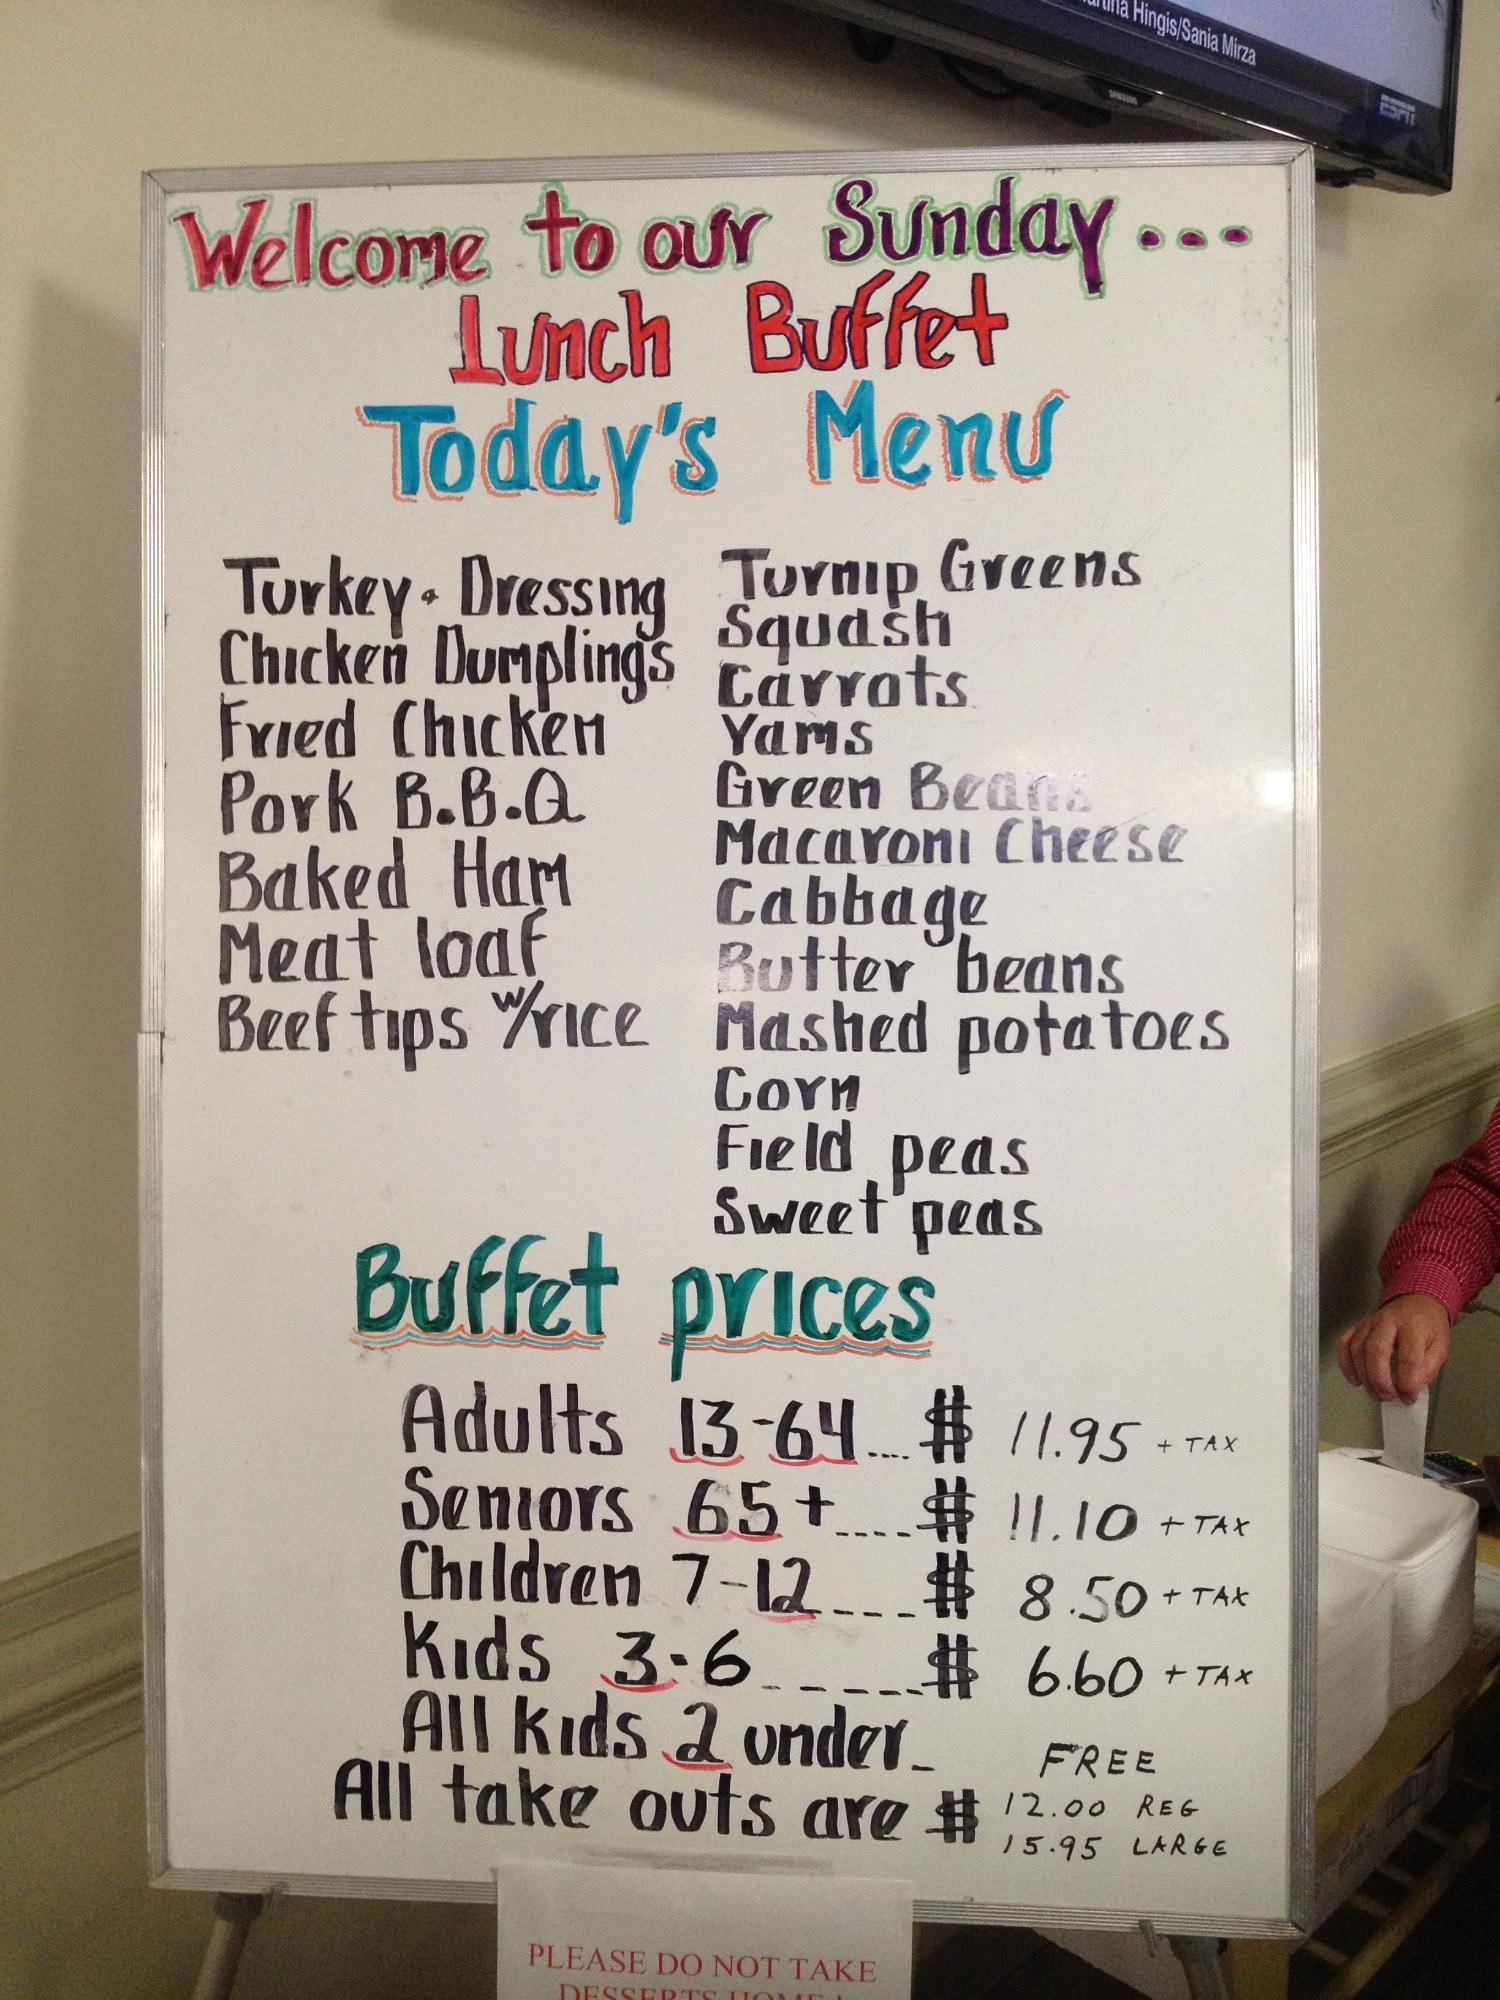 Martina Hingis/Sania Mirza
SAMSUNG
ESPN
Welcome to our Sunday...
Lunch Buffet
Today's Menu
Turkey & Dressing
Chicken Dumplings
Fried Chicken
Pork B.B.Q
Baked Ham
Meat loaf
Beef tips w/rice
Turnip Greens
Squash
Carrots
Yams
Green Beans
Macaroni Cheese
Cabbage
Butter beans
Mashed potatoes
Corn
Field peas
Sweet peas
Buffet prices
Adults 13-64.... $ 11.95 + TAX
Seniors 65+....$ 11.10 + TAX
Children 7-12----$ 8.50 + TAX
Kids 3-6------$ 6.60 + TAX
All kids 2 under- FREE
All take outs are $ 12.00 REG
15.95 LARGE
PLEASE DO NOT TAKE
DESSERTS HOME !